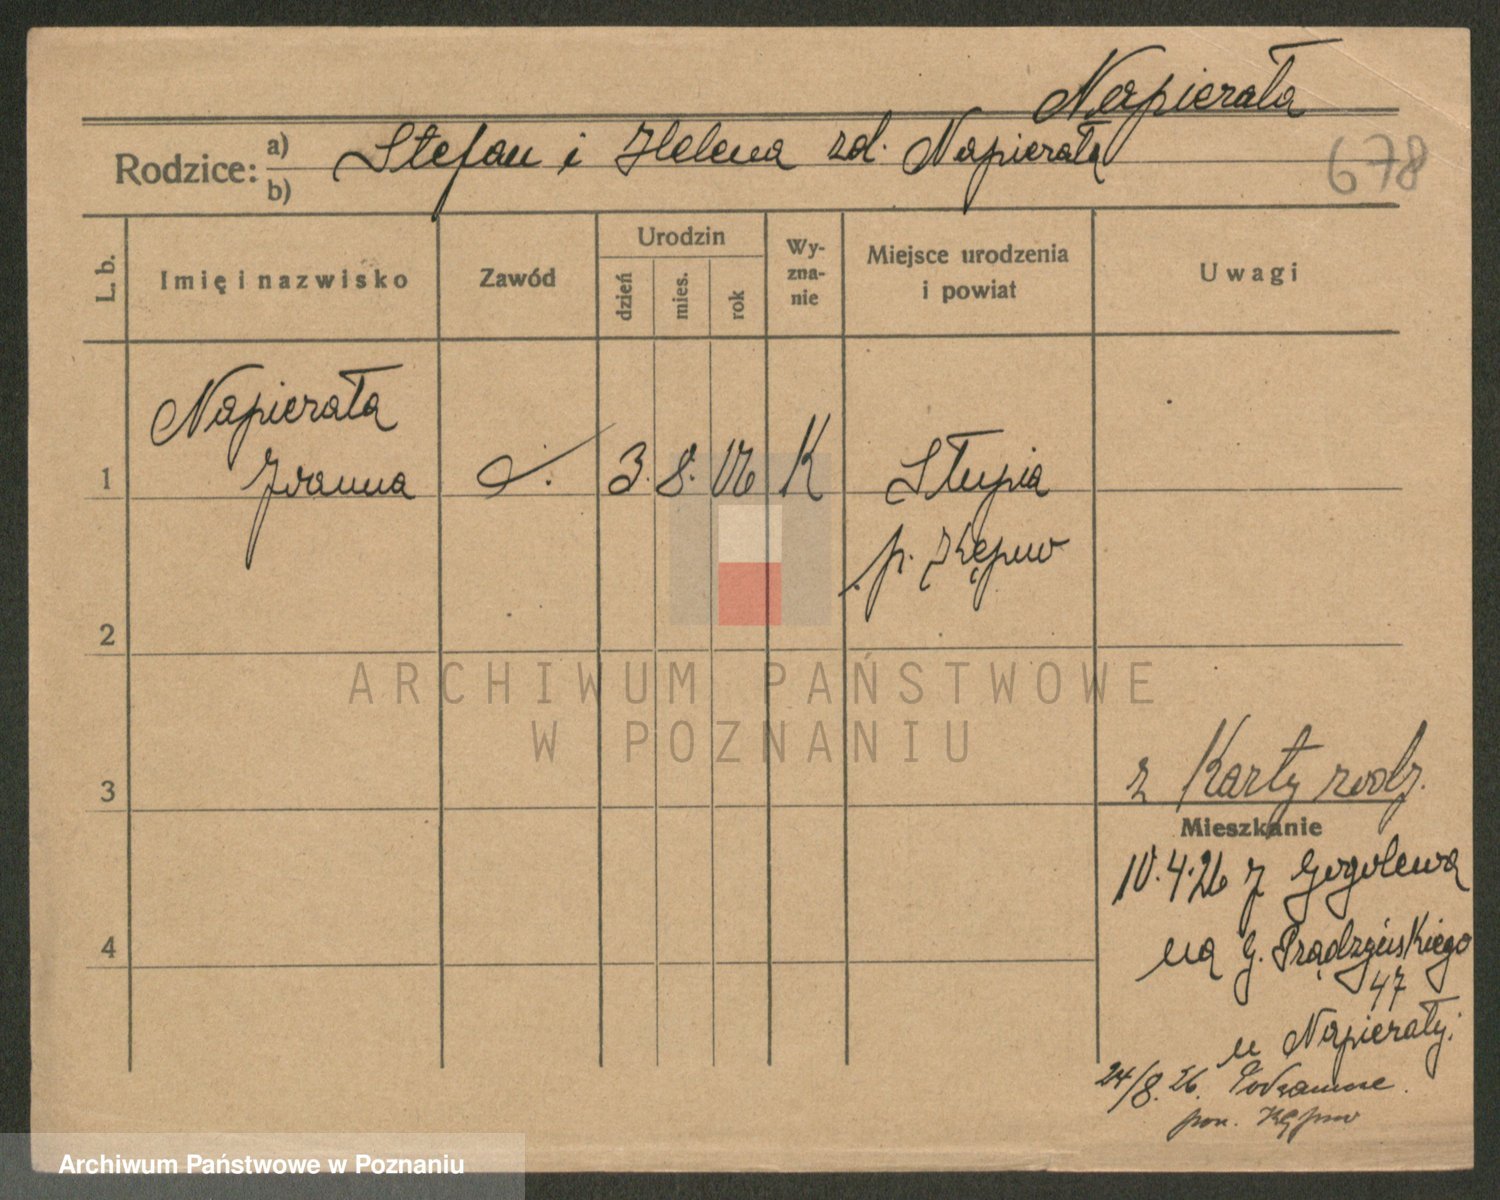 Napierała
Rodzice: a) Stefan i Helena zd. Napierała
b)
678
L. b.
Imię i nazwisko
Zawód
Urodzin
dzień
mies.
rok
Wy-
zna-
nie
Miejsce urodzenia
i powiat
Uwagi
Napierała
1 Joanna
3. 8. 06 K Słupia
p. Kępno
2
ARCHIWUM PAŃSTWOWE
W POZNANIU
3
z Karty rodz.
Mieszkanie
10.4.26 z Gogolewa
4
na G. Prądzyńskiego
47
u Napierały.
24/8.26.
pow. Kępno
Archiwum Państwowe w Poznaniu